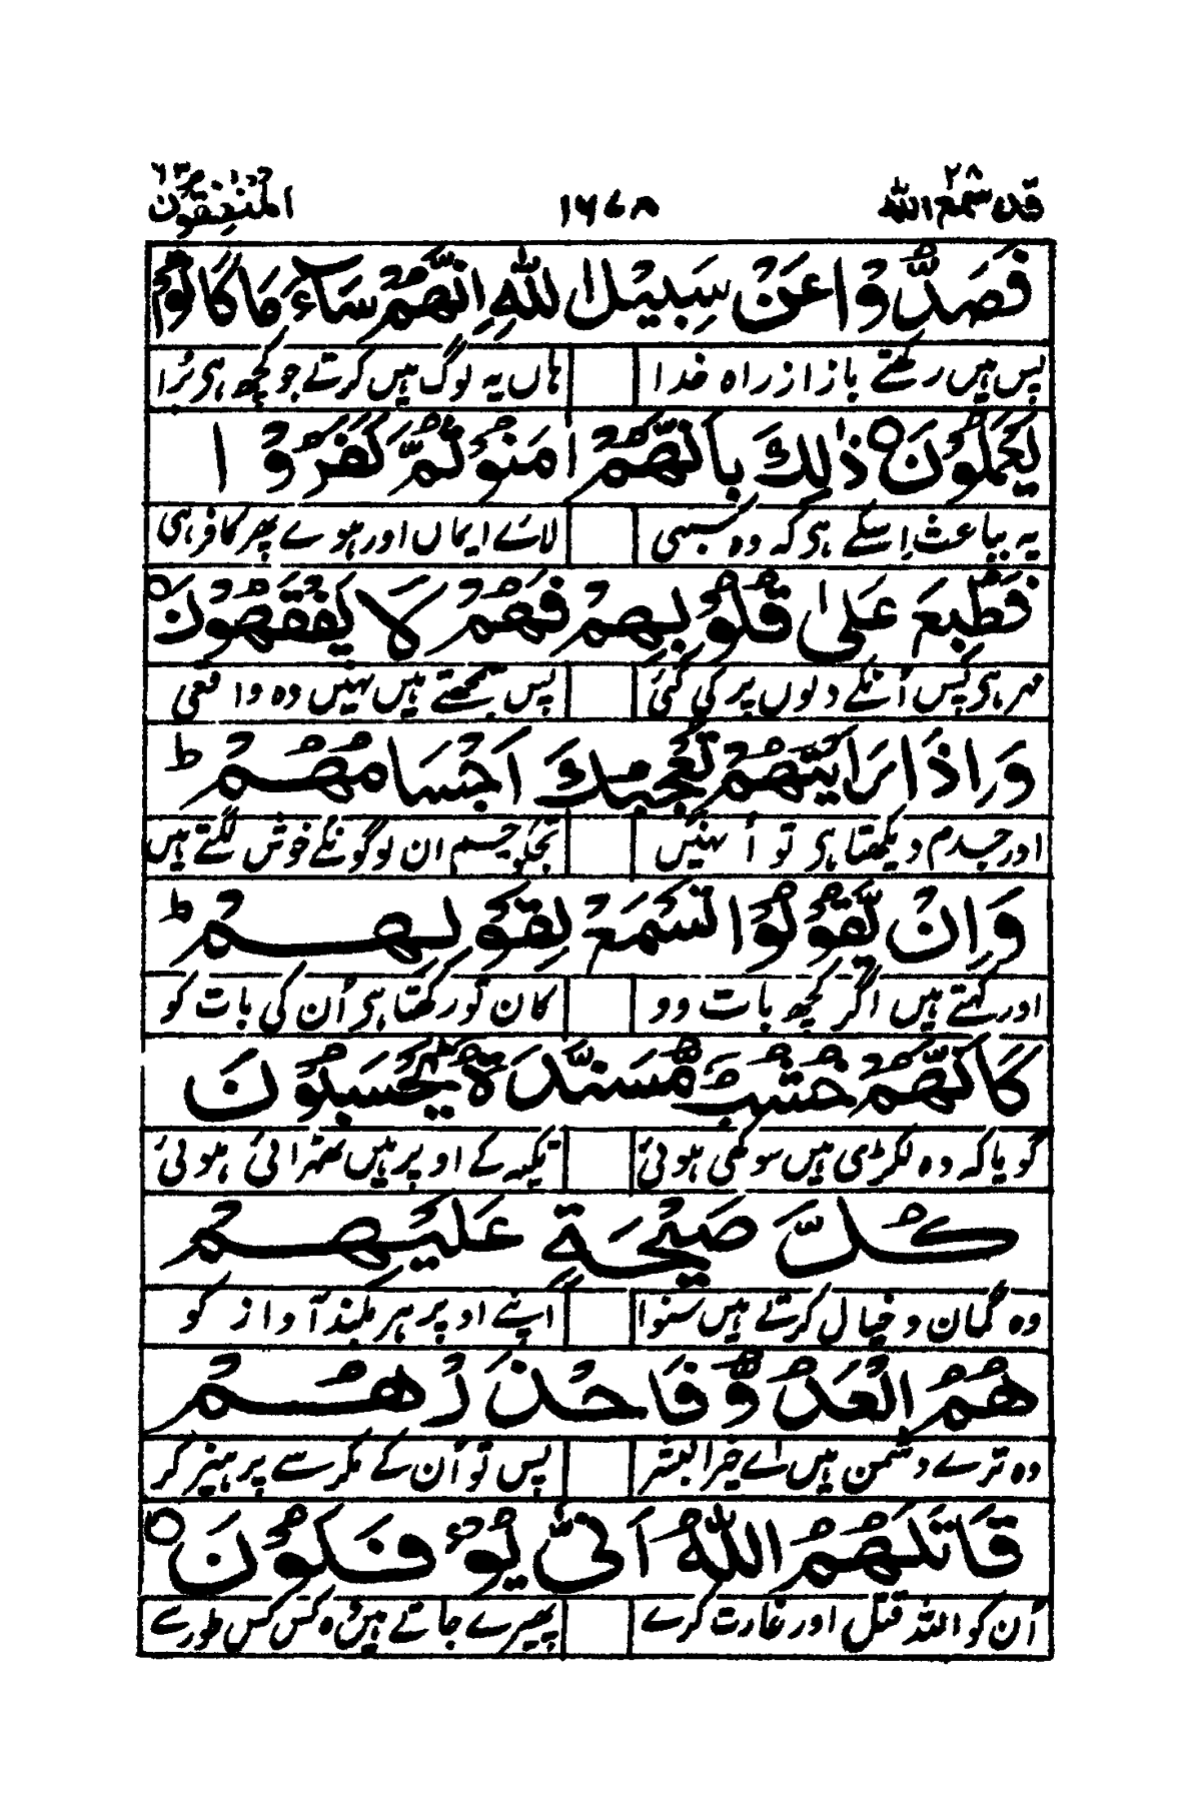 قد سمع الله ٢٨ ١٦٧٨ المنفقون ٦٣
فَصَدُّوْا عَنْ سَبِيْلِ اللّٰهِ اِنَّهُمْ سَآءَ مَا كَانُوْا
پس ہیں رکھتے باز از راہ خدا ہاں یہ لوگ ہیں کرتے جو کچھ ہی بُرا
يَعْمَلُوْنَ ○ ذٰلِكَ بِاَنَّهُمْ اٰمَنُوْا ثُمَّ كَفَرُوْا
یہ بباعث اِسکے ہی کہ وہ سبھی لائے ایماں اور ہوے پھر کافر ہی
فَطُبِعَ عَلٰى قُلُوْبِهِمْ فَهُمْ لَا يَفْقَهُوْنَ ○
مہر ہی پس اُنکے دلوں پر کی گئی پس سمجھتے ہیں نہیں وہ واقعی
وَاِذَا رَاَيْتَهُمْ تُعْجِبُكَ اَجْسَامُهُمْ ؕ
اور جسدم دیکھتا ہی تو اُنہیں تجکو جسم ان لوگونکے خوش لگتے ہیں
وَاِنْ يَّقُوْلُوْا تَسْمَعْ لِقَوْلِهِمْ ؕ
اور کہتے ہیں اگر کچھ بات وو کان تو رکھتا ہی اُن کی بات کو
كَاَنَّهُمْ خُشُبٌ مُّسَنَّدَةٌ ؕ يَحْسَبُوْنَ
گویا کہ وہ لکڑی ہیں سوکھی ہوئی تکیہ کے اوپر ہیں ٹھہرائی ہوئی
كُلَّ صَيْحَةٍ عَلَيْهِمْ
وہ گمان و خیال کرتے ہیں سنوا اپنے اوپر ہر بلند آواز کو
هُمُ الْعَدُوُّ فَاحْذَرْهُمْ
وہ ترے دشمن ہیں اے خیر البشر پس تو اُن کے مکر سے پرہیز کر
قَاتَلَهُمُ اللّٰهُ اَنّٰى يُؤْفَكُوْنَ ○
اُن کو اللہ قتل اور غارت کرے پھیرے جاتے ہیں وہ کس کس طور سے